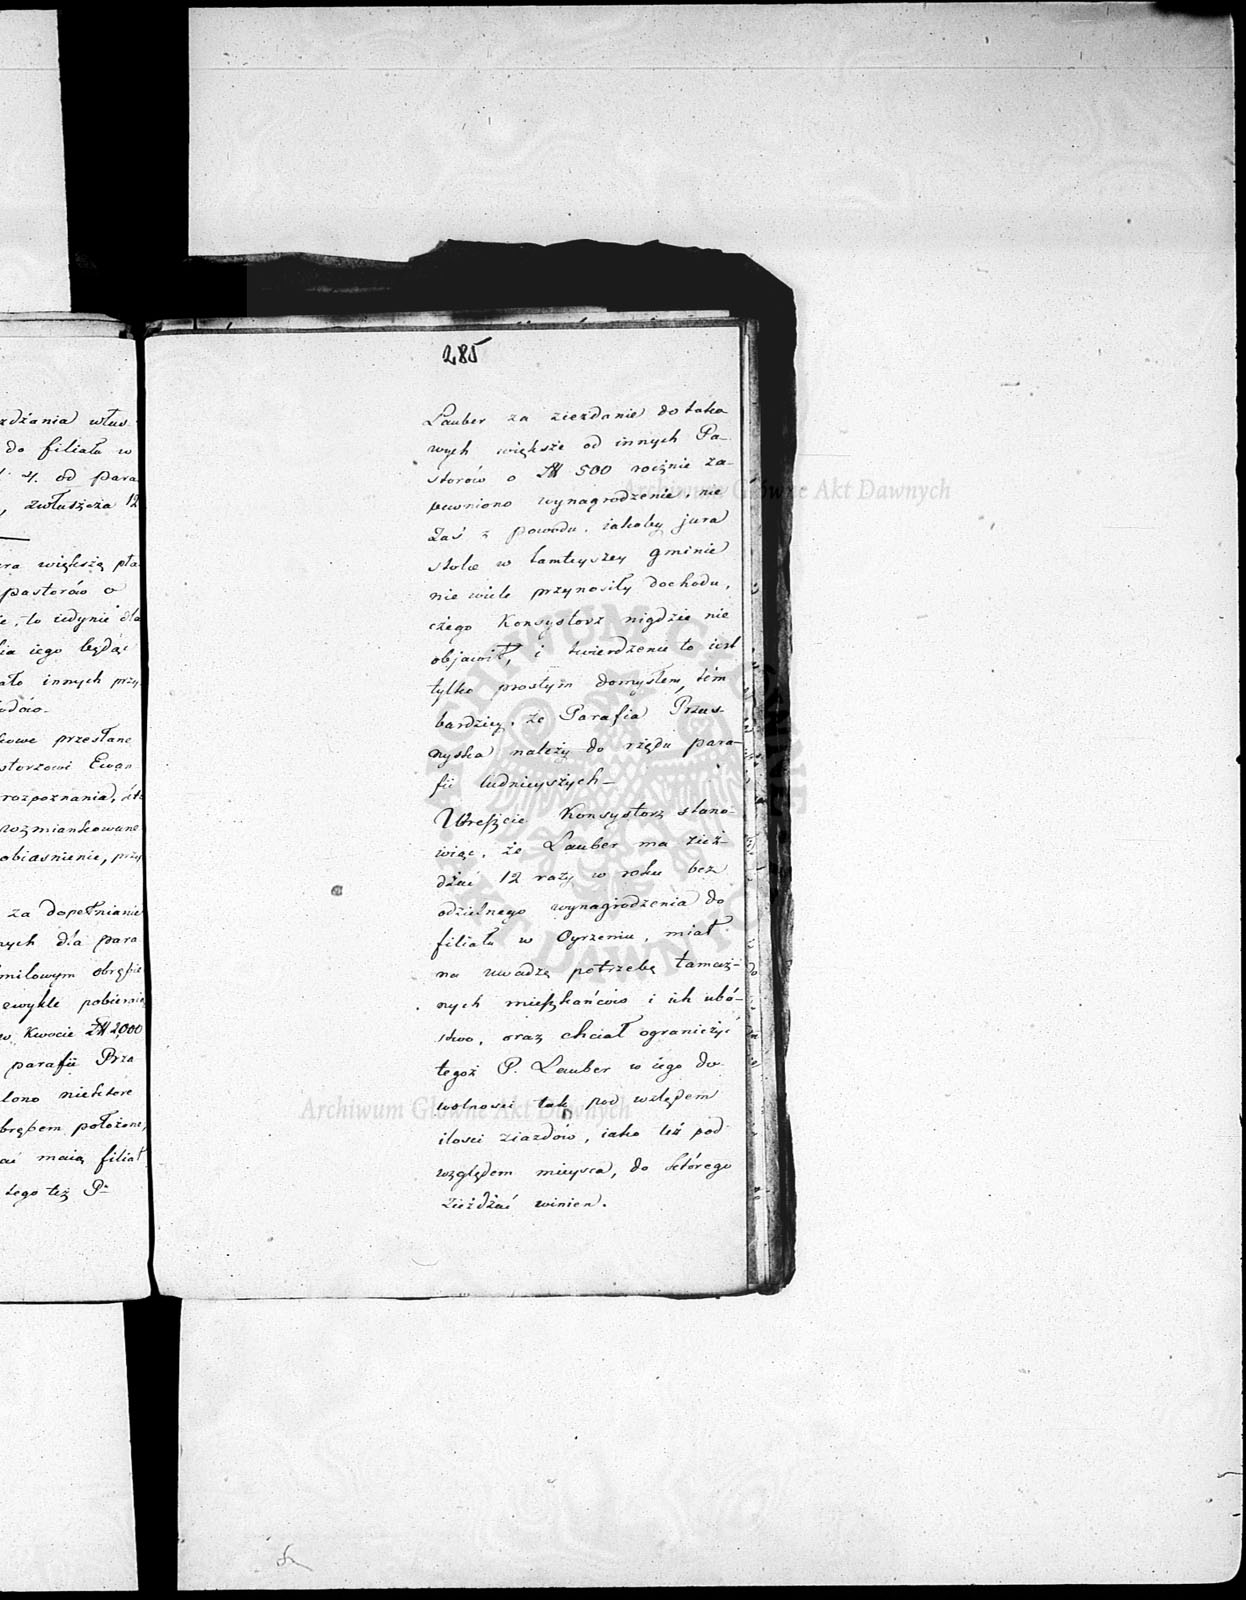 rdżania włas
do filiału w
od para
zwłaszcza 12
ra większą pła
pastorów o
ie, to iedynie dla
ia iego będąc
ało innych przy
odów.
kowe przesłane
storzowi Ewan
rozpoznania,
wzmiankowane
obiasnienie, przy
za dopełnianie
nych dla para
milowym obrębie
zwykle pobieraią
w Kwocie Zł 2000
parafii Prza
lono niektóre
brębem położone,
ać maią filiał
tego też P.
285
Lauber za zieżdanie do taka
wych większe od innych Pa-
storów o Zł 500 rocznie za-
pewniono wynagrodzenie, nie
Zaś z powodu, iakoby jura
stolæ w tamteyszey gminie
nie wiele przynosiły dochodu,
czego Konsystorz nigdzie nie
objawił, i twierdzenie to iest
tylko prostym domysłem, tém
bardziey, że Parafia Przas-
nyska należy do rzędu para-
fii ludnieyszych—
Wreszcie Konsystorz stano-
wiąc, że Lauber ma zież-
dżać 12 razy w roku bez
odzielnego wynagrodzenia do
filiału w Ogrzeniu, miał
na uwadze potrzebę tamacz-
nych mieszkańców i ich ubó-
stwo, oraz chciał ograniczyć
tegoż P. Lauber w iego do-
wolnosci tak pod względem
ilosci ziazdów, iako też pod
względem mieysca, do którego
zieżdżać winien.
Archiwum Główne Akt Dawnych
Archiwum Główne Akt Dawnych
ARCHIWUM GŁÓWNE AKT DAWNYCH